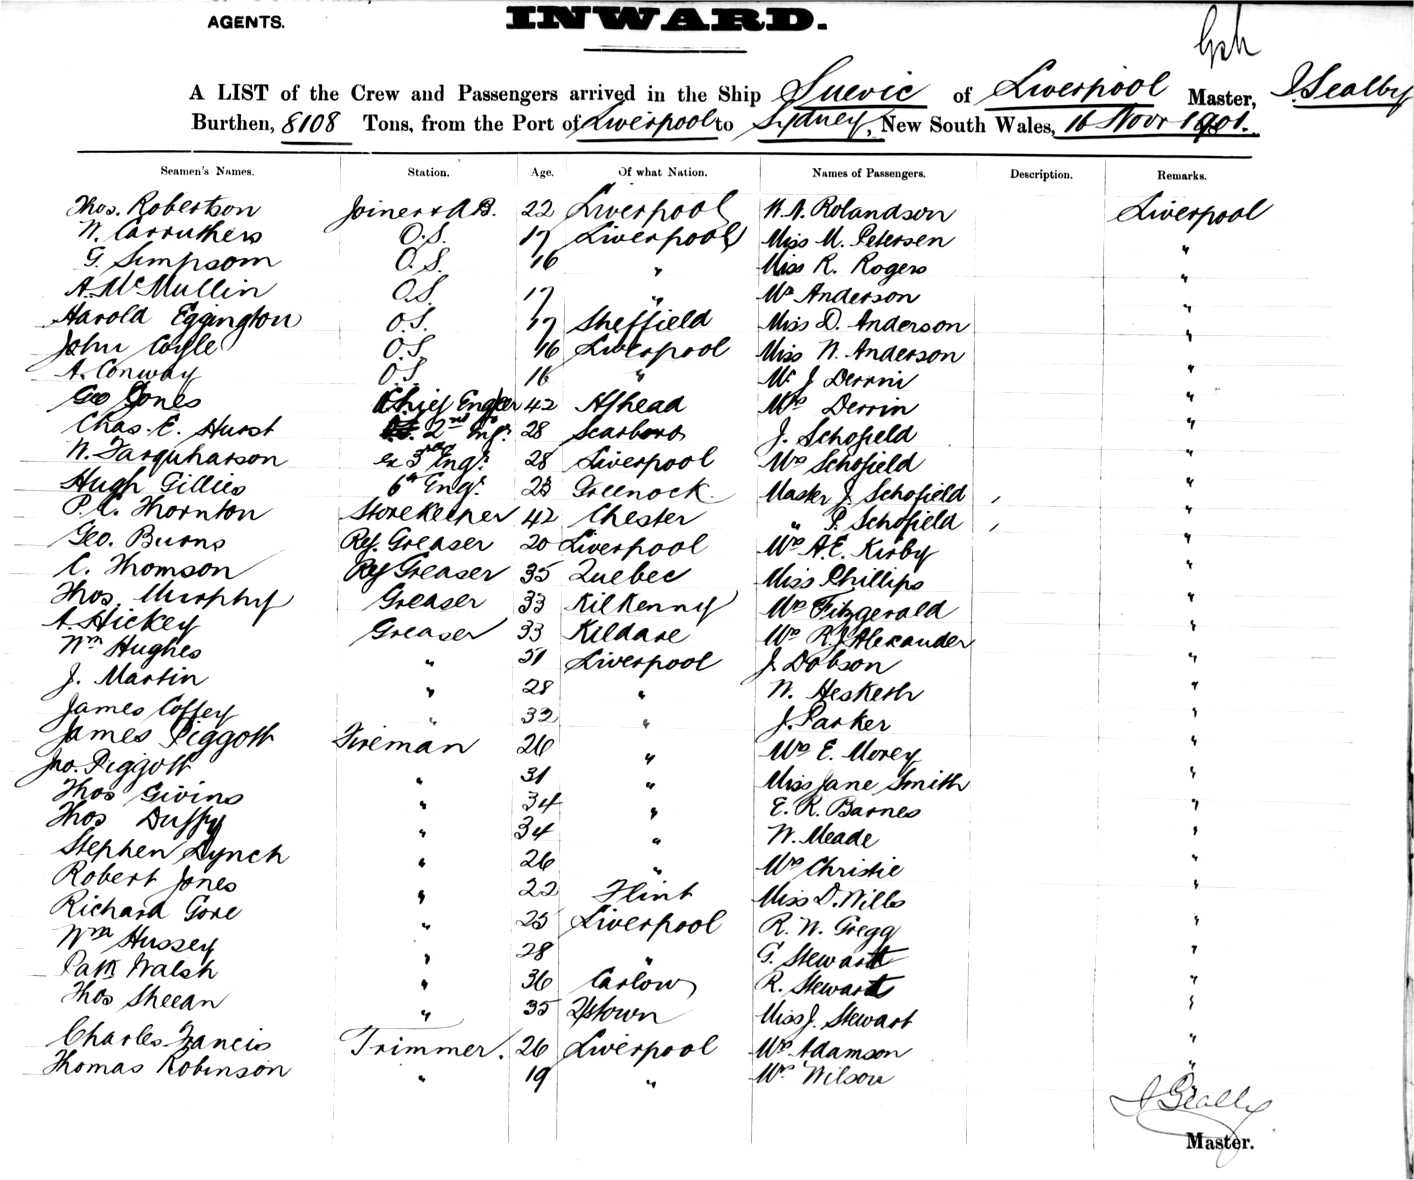 AGENTS.
INWARD.
A LIST of the Crew and Passengers arrived in the Ship Suevic of Liverpool Master, J Sealby
Burthen, 8108 Tons, from the Port of Liverpool to Sydney, New South Wales, 16 Novr 1901.
Seamen's Names. Station. Age. Of what Nation. Names of Passengers. Description. Remarks.
Thos. Robertson Joiner & A.B. 22 Liverpool W. N. Rolandson Liverpool
W. Carruthers O.S. 17 Liverpool Miss M. Petersen "
G. Simpson O.S. 16 " Miss R. Rogers "
A. McMullin O.S. 17 " Mrs Anderson "
Harold Eggington O.S. 17 Sheffield Miss D. Anderson "
John Coyle O.S. 16 Liverpool Miss N. Anderson "
A. Conway O.S. 16 " Mr J Derrin "
Geo Jones Chief Engineer 42 B'head Mrs Derrin "
Chas. E. Hurst 2nd Engr. 28 Scarboro J. Schofield "
W. Farquharson ex 3rd Engr. 28 Liverpool Mrs Schofield "
Hugh Gillies 6th Engr. 23 Greenock Master J Schofield "
P.A. Thornton Storekeeper 42 Chester " P. Schofield "
Geo. Burns Ref. Greaser 20 Liverpool Mrs A.E. Kirby "
C. Thomson Ref Greaser 35 Quebec Miss Phillips "
Thos. Murphy Greaser 33 Kilkenny Mrs Fitzgerald "
A. Hickey Greaser 33 Kildare Mrs R.J. Alexander "
Wm Hughes " 51 Liverpool J. Dobson "
J. Martin " 28 " W. Hesketh "
James Coffey " 32 " J. Parker "
James Piggott Fireman 26 " Mrs E. Morey "
Jno. Piggott " 31 " Miss Jane Smith "
Thos Givins " 34 " E. R. Barnes "
Thos Duffy " 34 " W. Meade "
Stephen Lynch " 26 " Mrs Christie "
Robert Jones " 22 Flint Miss D. Wills "
Richard Gore " 25 Liverpool R. W. Gregg "
Wm Hussey " 28 " G. Stewart "
Patk Walsh " 36 Carlow R. Stewart "
Thos Sheean " 35 Miss J. Stewart "
Charles Francis Trimmer. 26 Liverpool Mrs Adamson "
Thomas Robinson " 19 " Mrs Wilson "
J Sealby
Master.